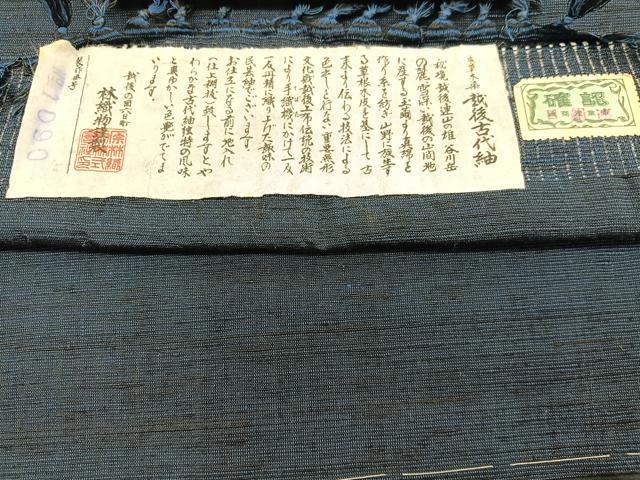 草木染 越後古代紬
秘境越後連山の雄 谷川岳
の麓 雪深い越後の山間地
に産する玉繭より真綿を
作り糸を紡ぎ山野に
る草根木皮を基にして古
来より伝わる技法による
色出しを行ない重要無形
文化財越後上布伝統の技術
により手織機にかけて一反
一反川精に織り上げた趣味の
民芸紬でございます。
お仕立になる前に地入れ
(仕上湯伏)致しますとや
わらかな古代紬独特の風味
と真に
います。
越後の国六日町
林織物謹製
製作番号
7090
確認